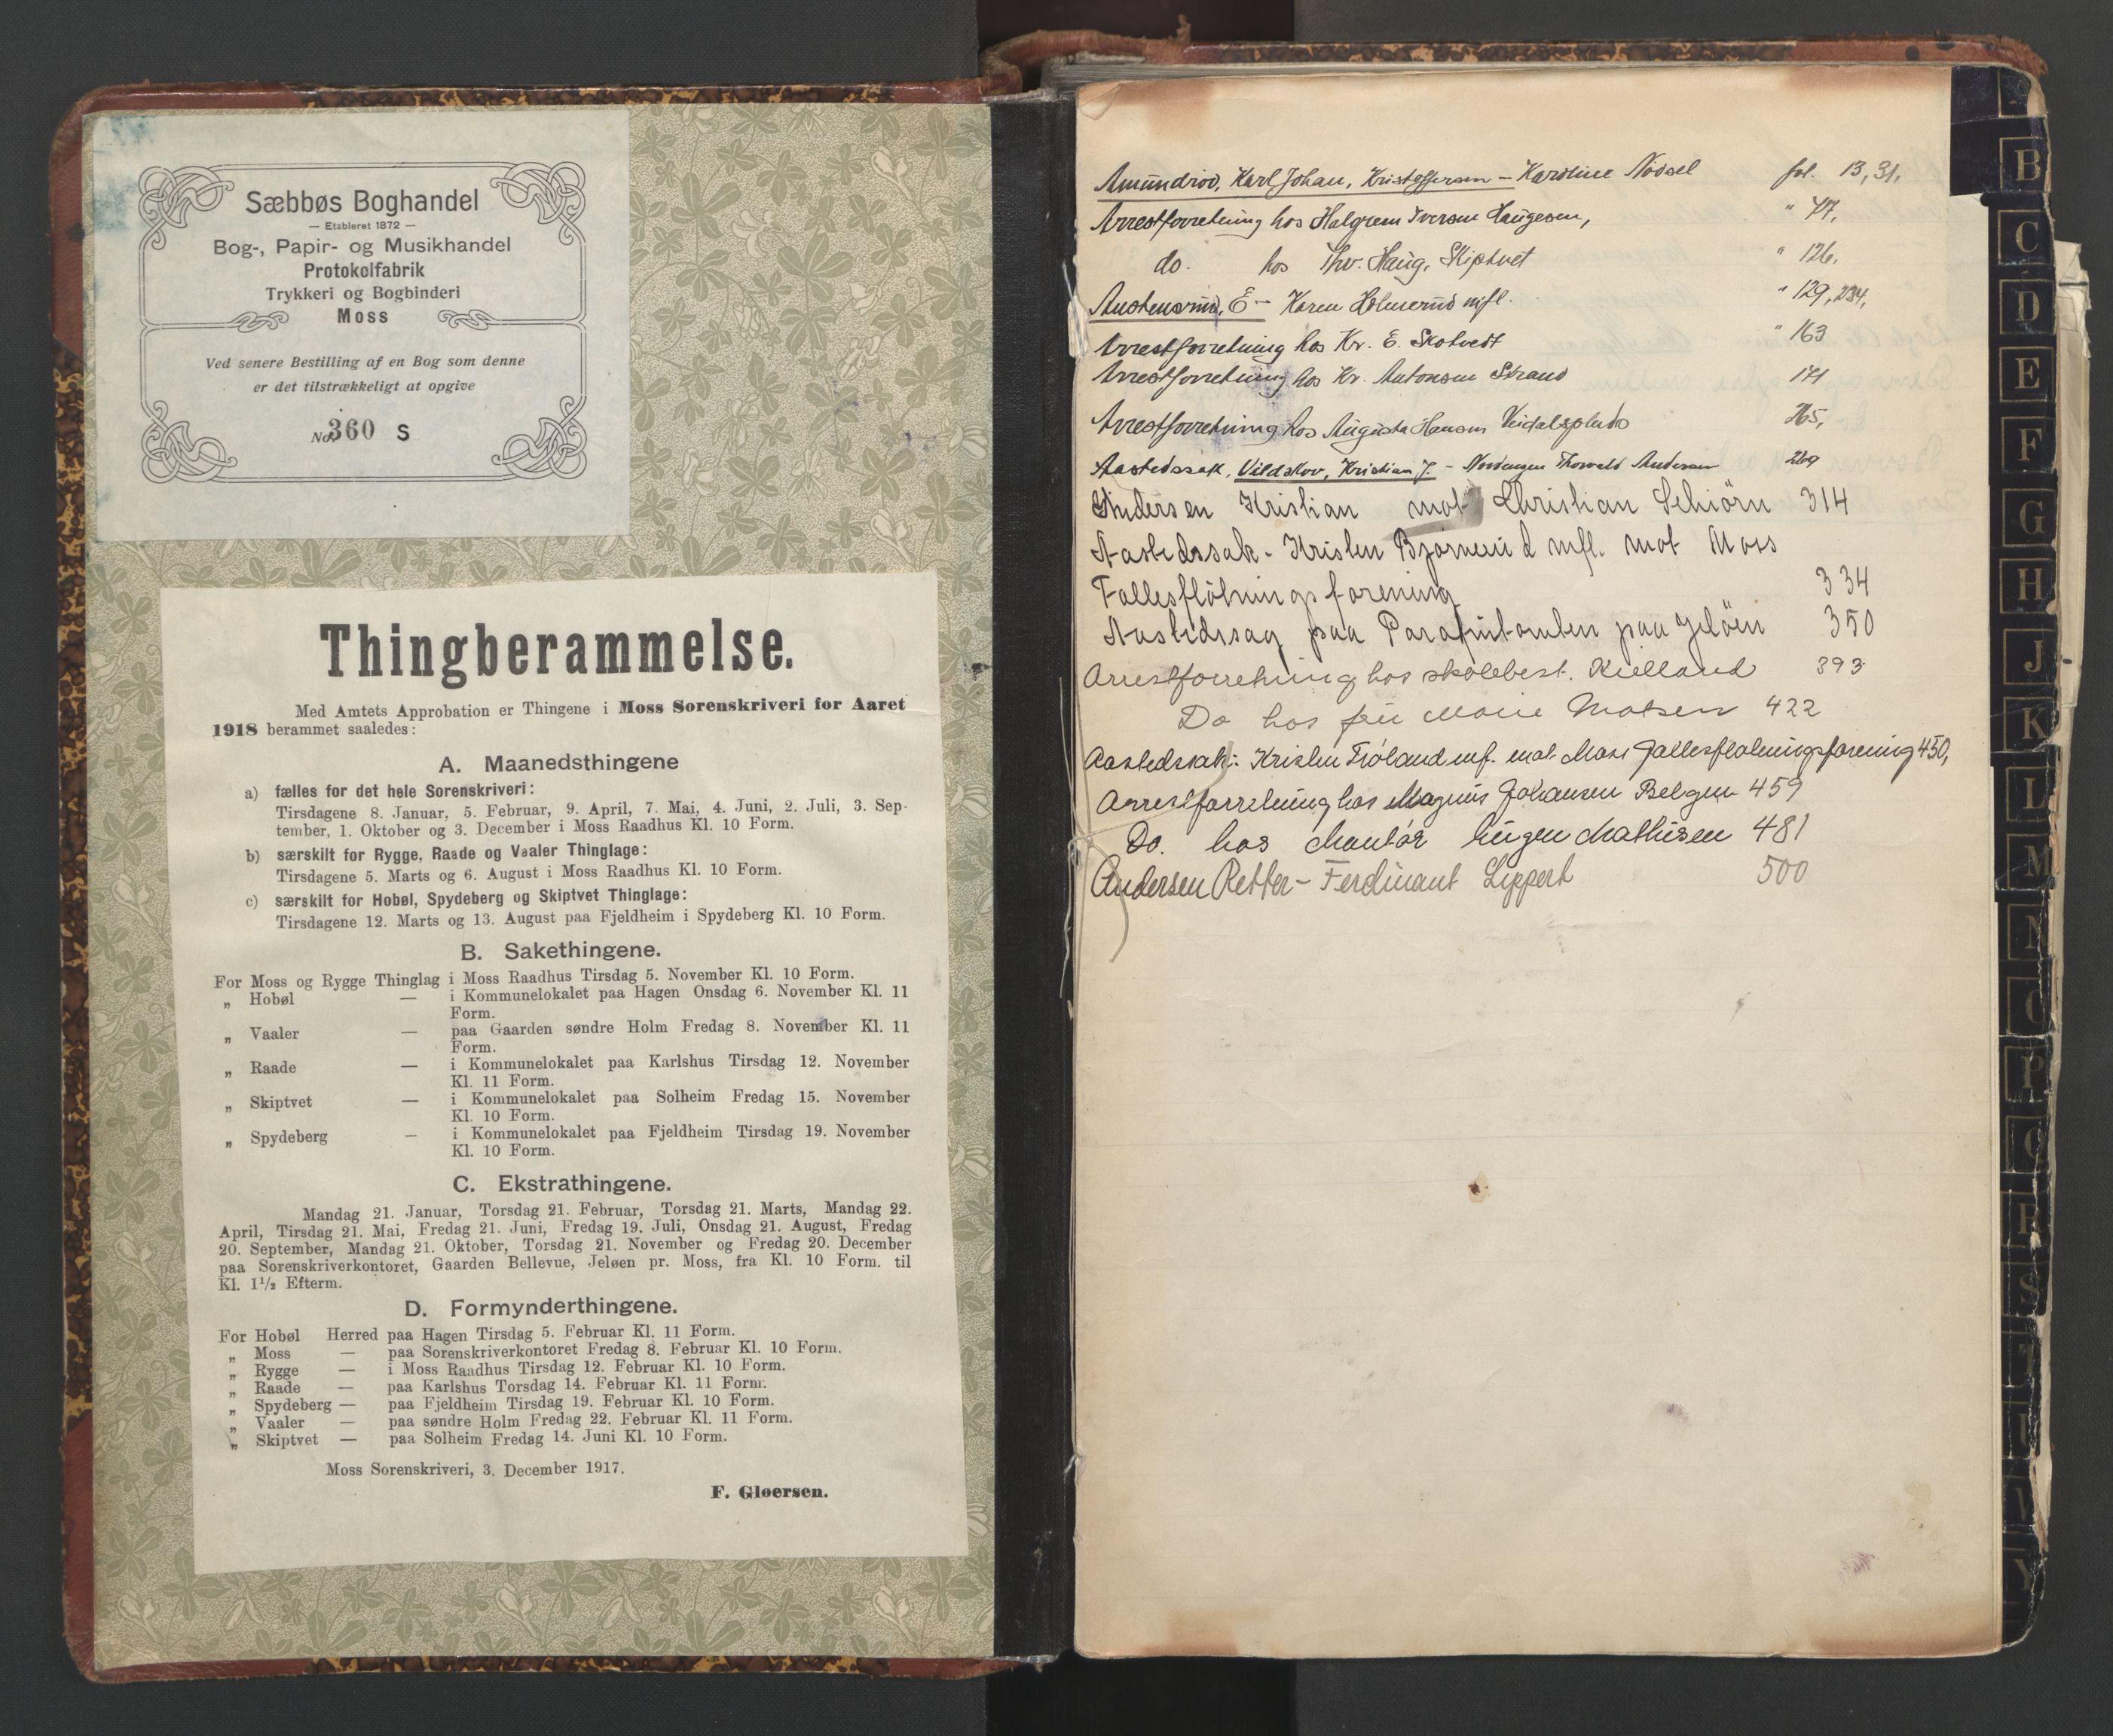 Sæbbøs Boghandel
— Etableret 1872 —
Bog-, Papir- og Musikhandel
Protokolfabrik
Trykkeri og Bogbinderi
Moss
Ved senere Bestilling af en Bog som denne
er det tilstrækkeligt at opgive
No. 360 S
Thingberammelse.
Med Amtets Approbation er Thingene i Moss Sorenskriveri for Aaret
1918 berammet saaledes:
A. Maanedsthingene
a) fælles for det hele Sorenskriveri:
Tirsdagene 8. Januar, 5. Februar, 9. April, 7. Mai, 4. Juni, 2. Juli, 3. Sep-
tember, 1. Oktober og 3. December i Moss Raadhus Kl. 10 Form.
b) særskilt for Rygge, Raade og Vaaler Thinglage:
Tirsdagene 5. Marts og 6. August i Moss Raadhus Kl. 10 Form.
c) særskilt for Hobøl, Spydeberg og Skiptvet Thinglage:
Tirsdagene 12. Marts og 13. August paa Fjeldheim i Spydeberg Kl. 10 Form.
B. Sakethingene.
For Moss og Rygge Thinglag i Moss Raadhus Tirsdag 5. November Kl. 10 Form.
„ Hobøl — i Kommunelokalet paa Hagen Onsdag 6. November Kl. 11
Form.
„ Vaaler — paa Gaarden søndre Holm Fredag 8. November Kl. 11
Form.
„ Raade — i Kommunelokalet paa Karlshus Tirsdag 12. November
Kl. 11 Form.
„ Skiptvet — i Kommunelokalet paa Solheim Fredag 15. November
Kl. 10 Form.
„ Spydeberg — i Kommunelokalet paa Fjeldheim Tirsdag 19. November
Kl. 10 Form.
C. Ekstrathingene.
Mandag 21. Januar, Torsdag 21. Februar, Torsdag 21. Marts, Mandag 22.
April, Tirsdag 21. Mai, Fredag 21. Juni, Fredag 19. Juli, Onsdag 21. August, Fredag
20. September, Mandag 21. Oktober, Torsdag 21. November og Fredag 20. December
paa Sorenskriverkontoret, Gaarden Bellevue, Jeløen pr. Moss, fra Kl. 10 Form. til
Kl. 1½ Efterm.
D. Formynderthingene.
For Hobøl Herred paa Hagen Tirsdag 5. Februar Kl. 11 Form.
„ Moss — paa Sorenskriverkontoret Fredag 8. Februar Kl. 10 Form.
„ Rygge — i Moss Raadhus Tirsdag 12. Februar Kl. 10 Form.
„ Raade — paa Karlshus Torsdag 14. Februar Kl. 11 Form.
„ Spydeberg — paa Fjeldheim Tirsdag 19. Februar Kl. 10 Form.
„ Vaaler — paa søndre Holm Fredag 22. Februar Kl. 11 Form.
„ Skiptvet — paa Solheim Fredag 14. Juni Kl. 10 Form.
Moss Sorenskriveri, 3. December 1917.
F. Gløersen.
Amundrød, Karl Johan, Kristoffersen – Karoline fol. 13, 31,
Arrestforretning hos Halgrem Iversen Haugesen, " 47,
do. hos Thv. Haug, Skiptvet " 126,
Austensrud, E – Karen Holmerud mfl. " 129, 234,
Arrestforretning hos Kr. E. Skotvedt " 163
Arrestforretning hos Kr. Antonsen Strand 171
Arrestforretning hos Augusta Hansen 265,
Aastedssak, Vildskov, Kristian J. – Nordengen Thorvald Andersen 269
Andersen Kristian mot Christian Schiörn 314
Aastedssak - Kristen Bjørnerud mfl. mot Moss
Fællesflötningsforening 334
Aastedssag paa Parafintomten paa Jelöen 350
Arrestforretning hos skolebest. Kielland 393
Do hos fru Marie Madsen 422
Aastedssak: Kristen Fróland mf. mot Moss Fællesflötningsforening 450,
Arrestforretning hos Magnus Johansen Belgen 459
Do. hos Montør Eugen Mathisen 481
Andersen Petter – Ferdinant Lippert 500
B
C
D
E
F
G
H
J
K
L
M
N
O
P
Q
R
S
T
U
V
Y